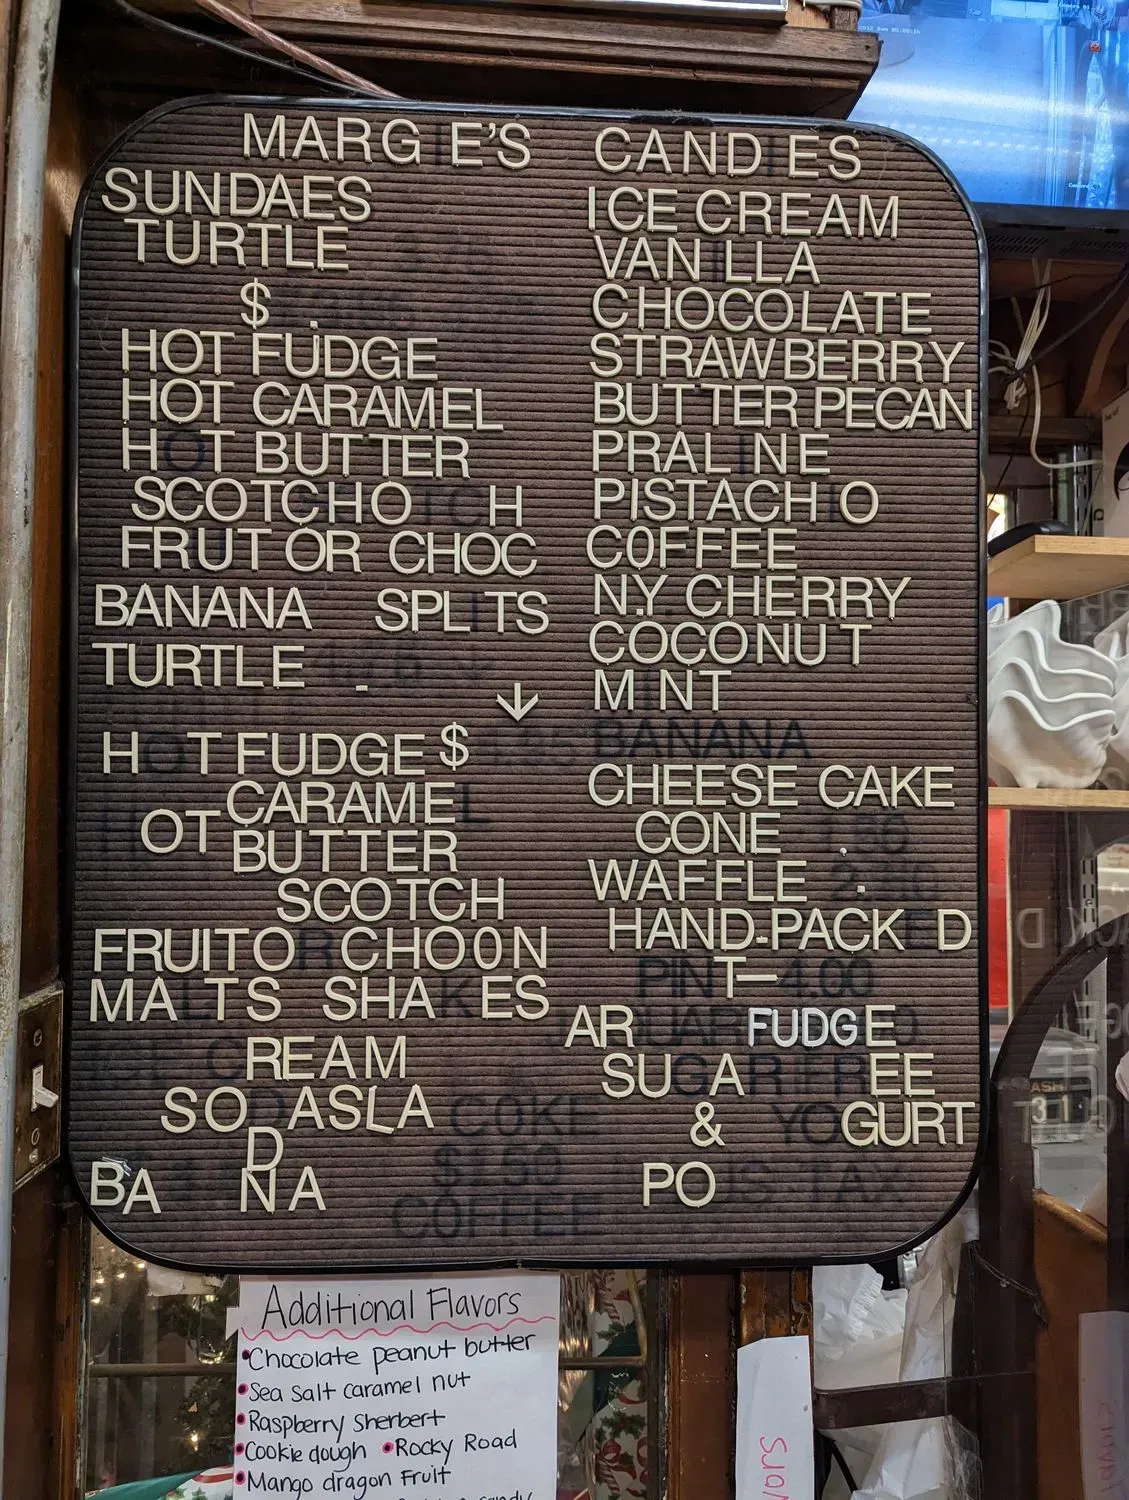 MARG E'S CAND ES
SUNDAES
TURTLE
$ .
HOT FUDGE
HOT CARAMEL
H T BUTTER
SCOTCHO H
FRUT OR CHOC
BANANA SPL TS
TURTLE -
↓
H T FUDGE $
CARAME
OT BUTTER
SCOTCH
FRUITO CHO0N
MA TS SHA ES
REAM
SO ASLA
D
BA N A
ICE CREAM
VAN LLA
CHOCOLATE
STRAWBERRY
BUTTER PECAN
PRAL NE
PISTACH O
C0FFEE
N.Y CHERRY
COCONUT
M NT
BANANA
CHEESE CAKE
CONE .
WAFFLE .
HAND-PACK D
PINT—4.00
AR FUDGE
SU A EE
& GURT
PO
COKE
$1.60
COFFEE
Additional Flavors
•Chocolate peanut butter
•Sea salt caramel nut
•Raspberry Sherbert
•Cookie dough •Rocky Road
•Mango dragon Fruit